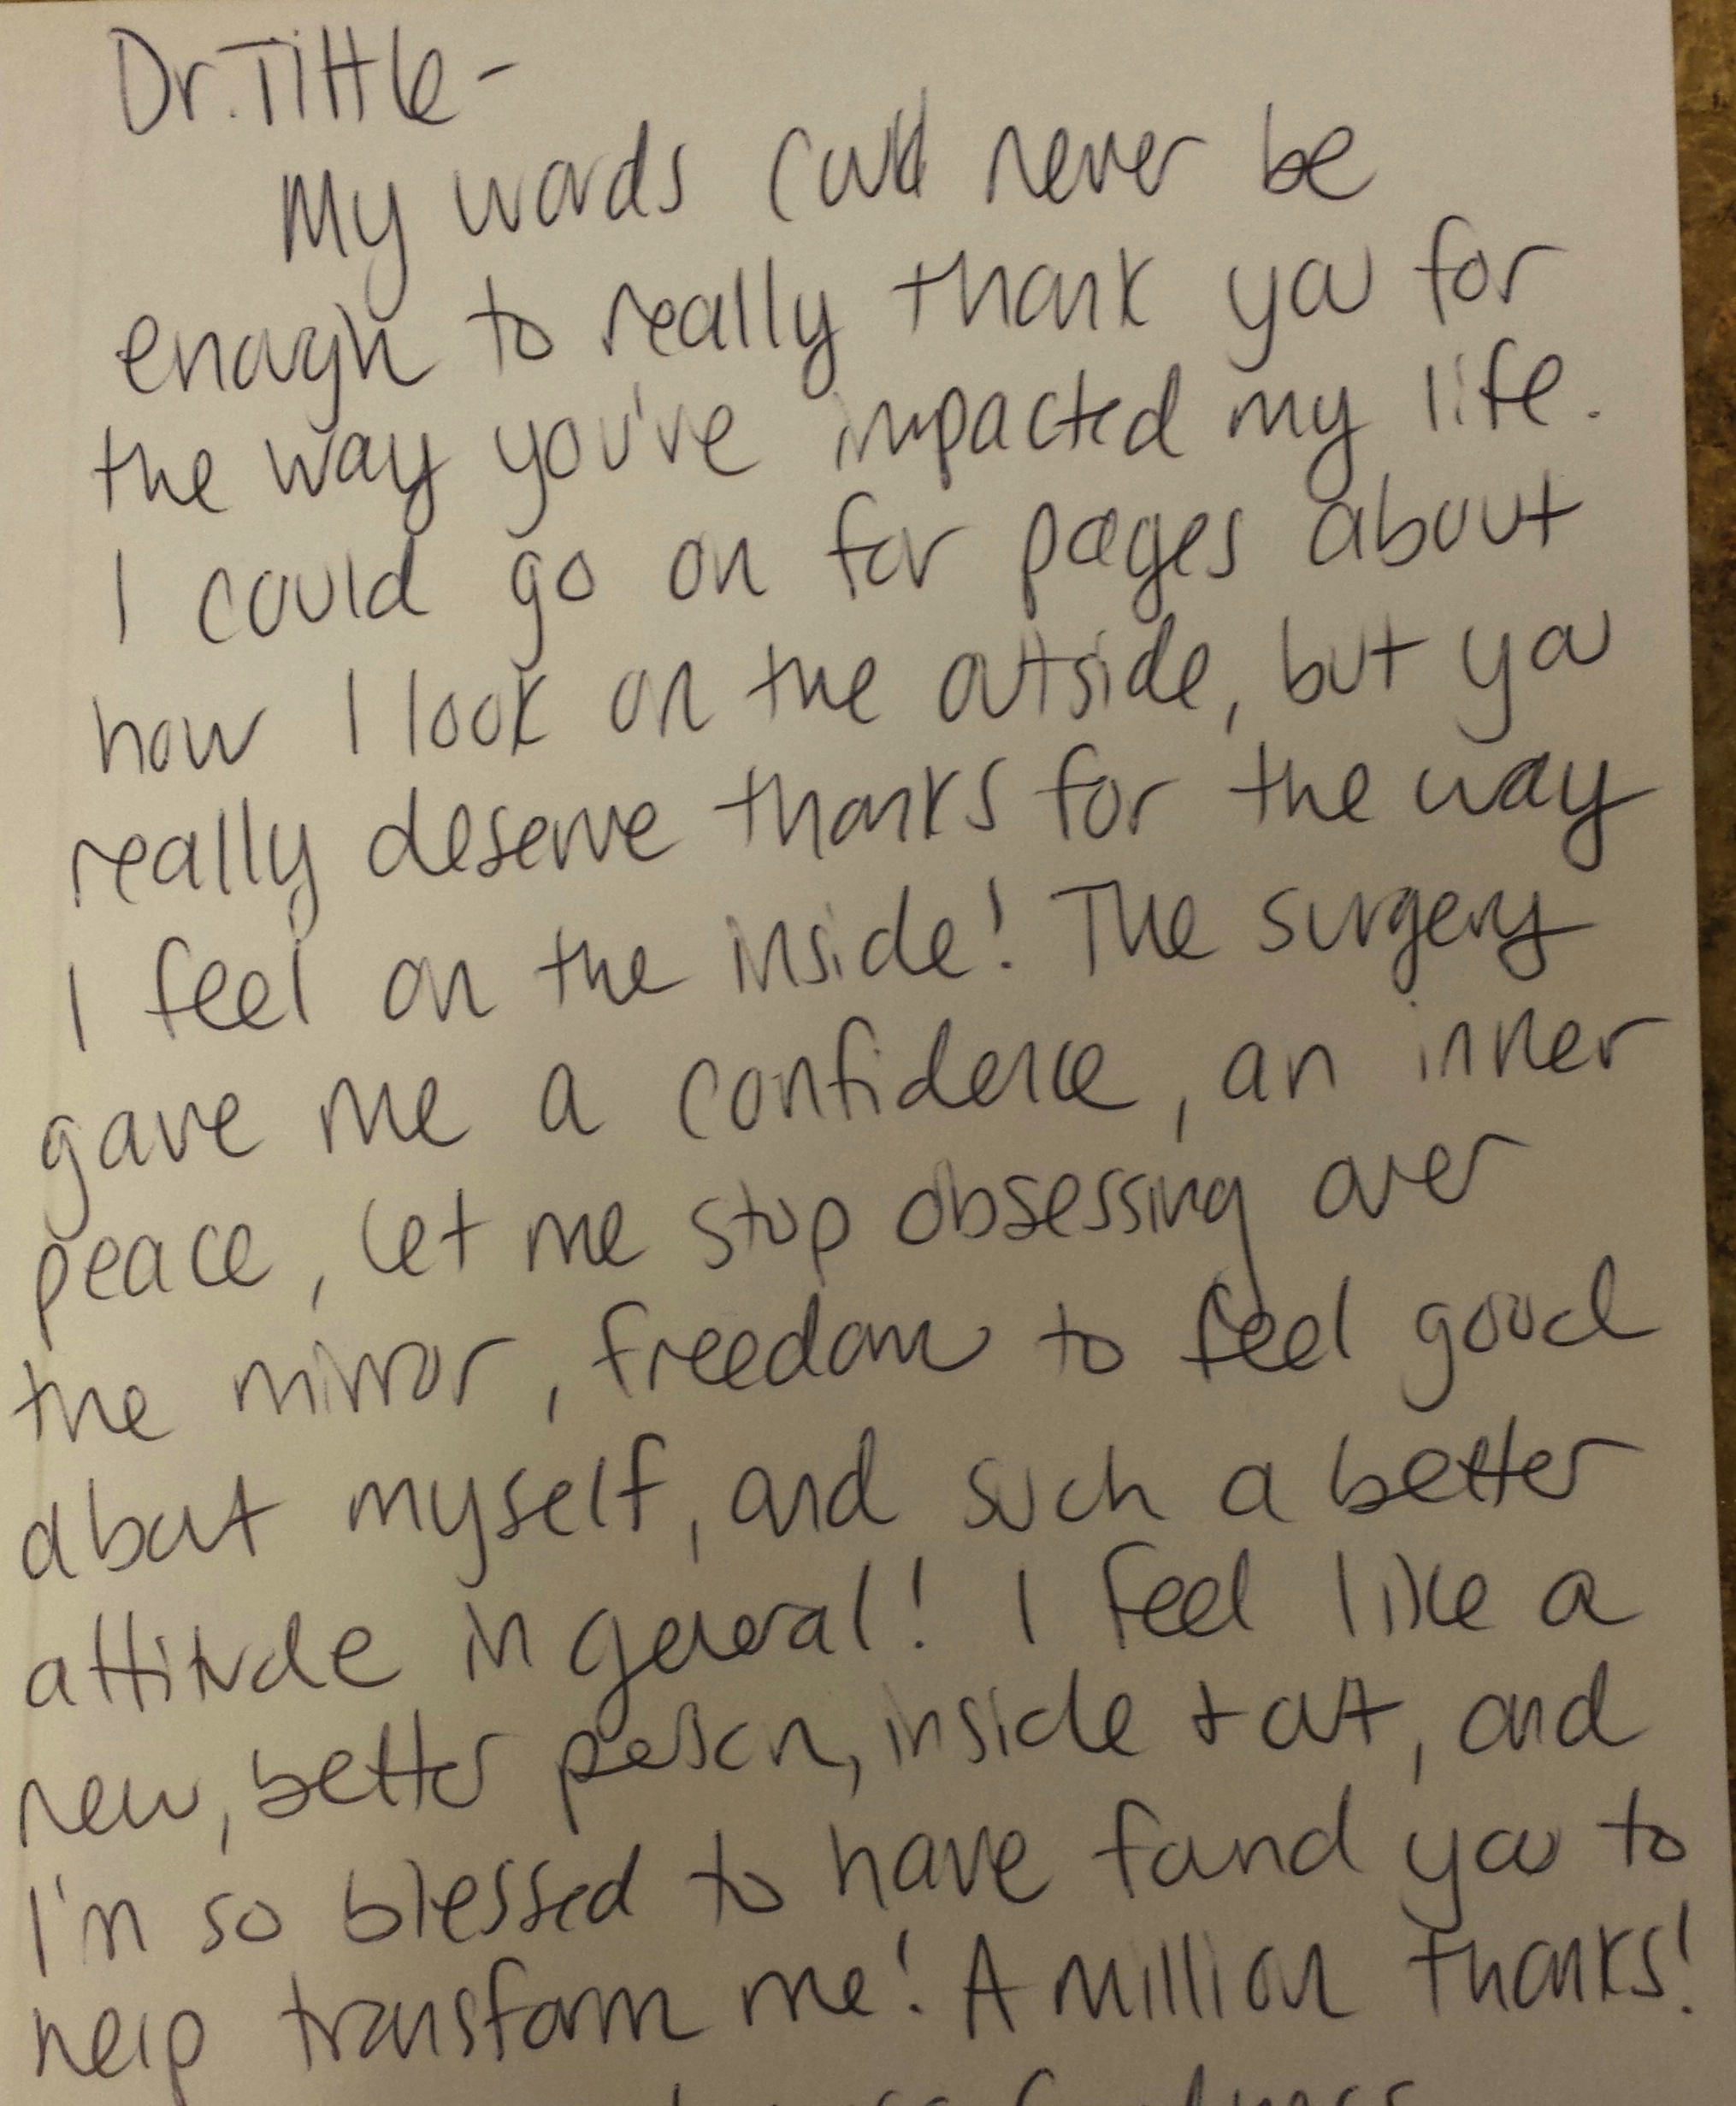 Dr. Tittle -
My words could never be
enough to really thank you for
the way you've impacted my life.
I could go on for pages about
how I look on the outside, but you
really deserve thanks for the way
I feel on the inside! The surgery
gave me a confidence, an inner
peace, let me stop obsessing over
the mirror, freedom to feel good
about myself, and such a better
attitude in general! I feel like a
new, better person, inside + out, and
I'm so blessed to have found you to
help transform me! A million thanks!